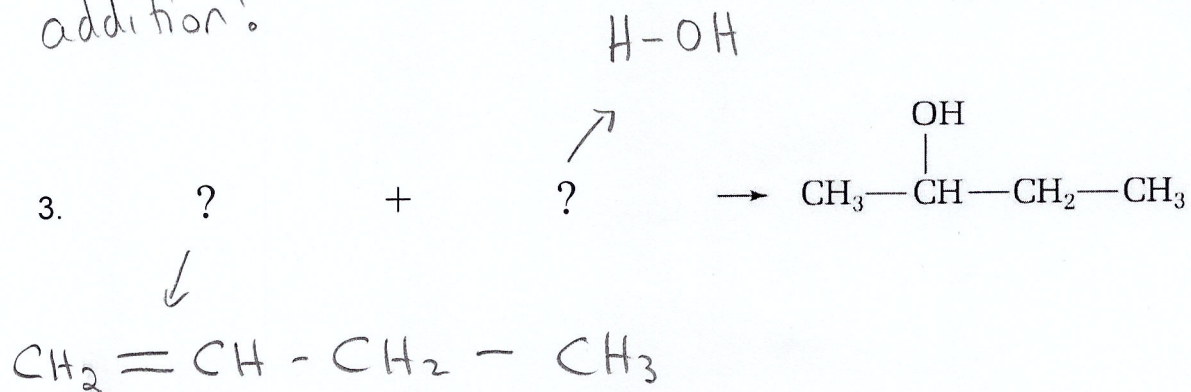 addition:
H-OH
OH
3. ? + ? → CH₃—CH—CH₂—CH₃
CH₂=CH-CH₂-CH₃